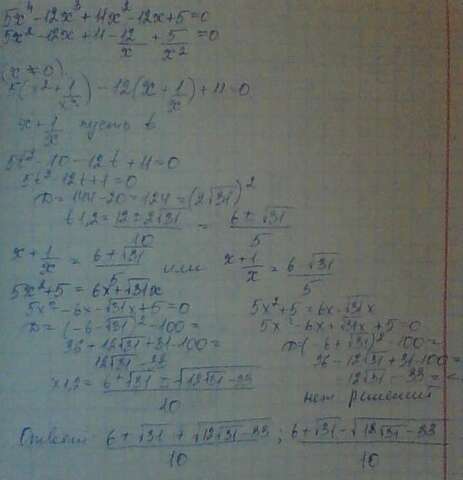 5x⁴-12x³+11x²-12x+5=0
5x²-12x+11-12/x+5/x²=0
(x≠0)
5(x²+1/x²)-12(x+1/x)+11=0
x+1/x пусть t
5t²-10-12t+11=0
5t²-12t+1=0
D=144-20=124=(2√31)²
t1,2=12±2√31/10=6±√31/5
x+1/x=6+√31/5 или x+1/x=6-√31/5
5x²+5=6x+√31x
5x²-6x-√31x+5=0
D=(-6-√31)²-100=
36+12√31+31-100=
12√31-33
x1,2=6+√31±√12√31-33/10
5x²+5=6x-√31x
5x²-6x+√31x+5=0
D=(-6+√31)²-100=
36-12√31+31-100=
-12√31-33=<
нет решений
Ответ: 6+√31+√12√31-33/10; 6+√31-√12√31-33/10